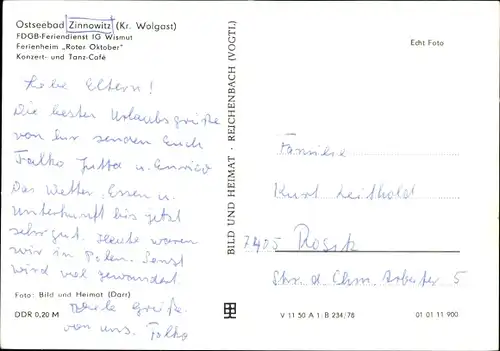 Ostseebad Zinnowitz (Kr. Wolgast)
FDGB-Feriendienst IG Wismut
Ferienheim „Roter Oktober"
Konzert- und Tanz-Café
Liebe Eltern!
Die besten Urlaubsgrüße
von hier senden Euch
Falko Jutta u. Enrico
Das Wetter, Essen u.
Unterkunft bis jetzt
sehr gut. Heute waren
wir in Polen. Sonst
wird viel gewandert.
Viele Grüße
von uns. Falko
Foto: Bild und Heimat (Darr)
DDR 0,20 M
BILD UND HEIMAT · REICHENBACH (VOGTL)
Echt Foto
Familie
Kurt Leithold
7405 Rositz
Str. d. Chem. Arbeiter 5
V 11 50 A 1 B 234/78
01 01 11 900